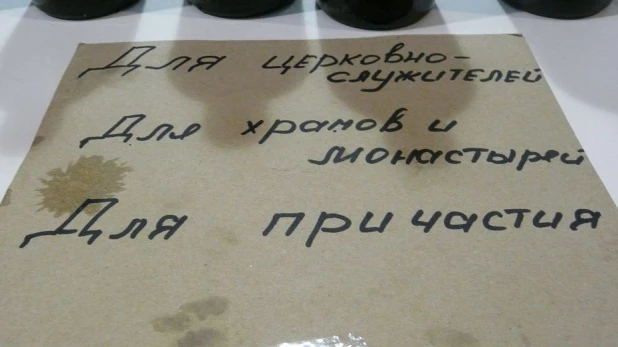 Для церковно-
служителей
Для храмов и
монастырей
Для причастия